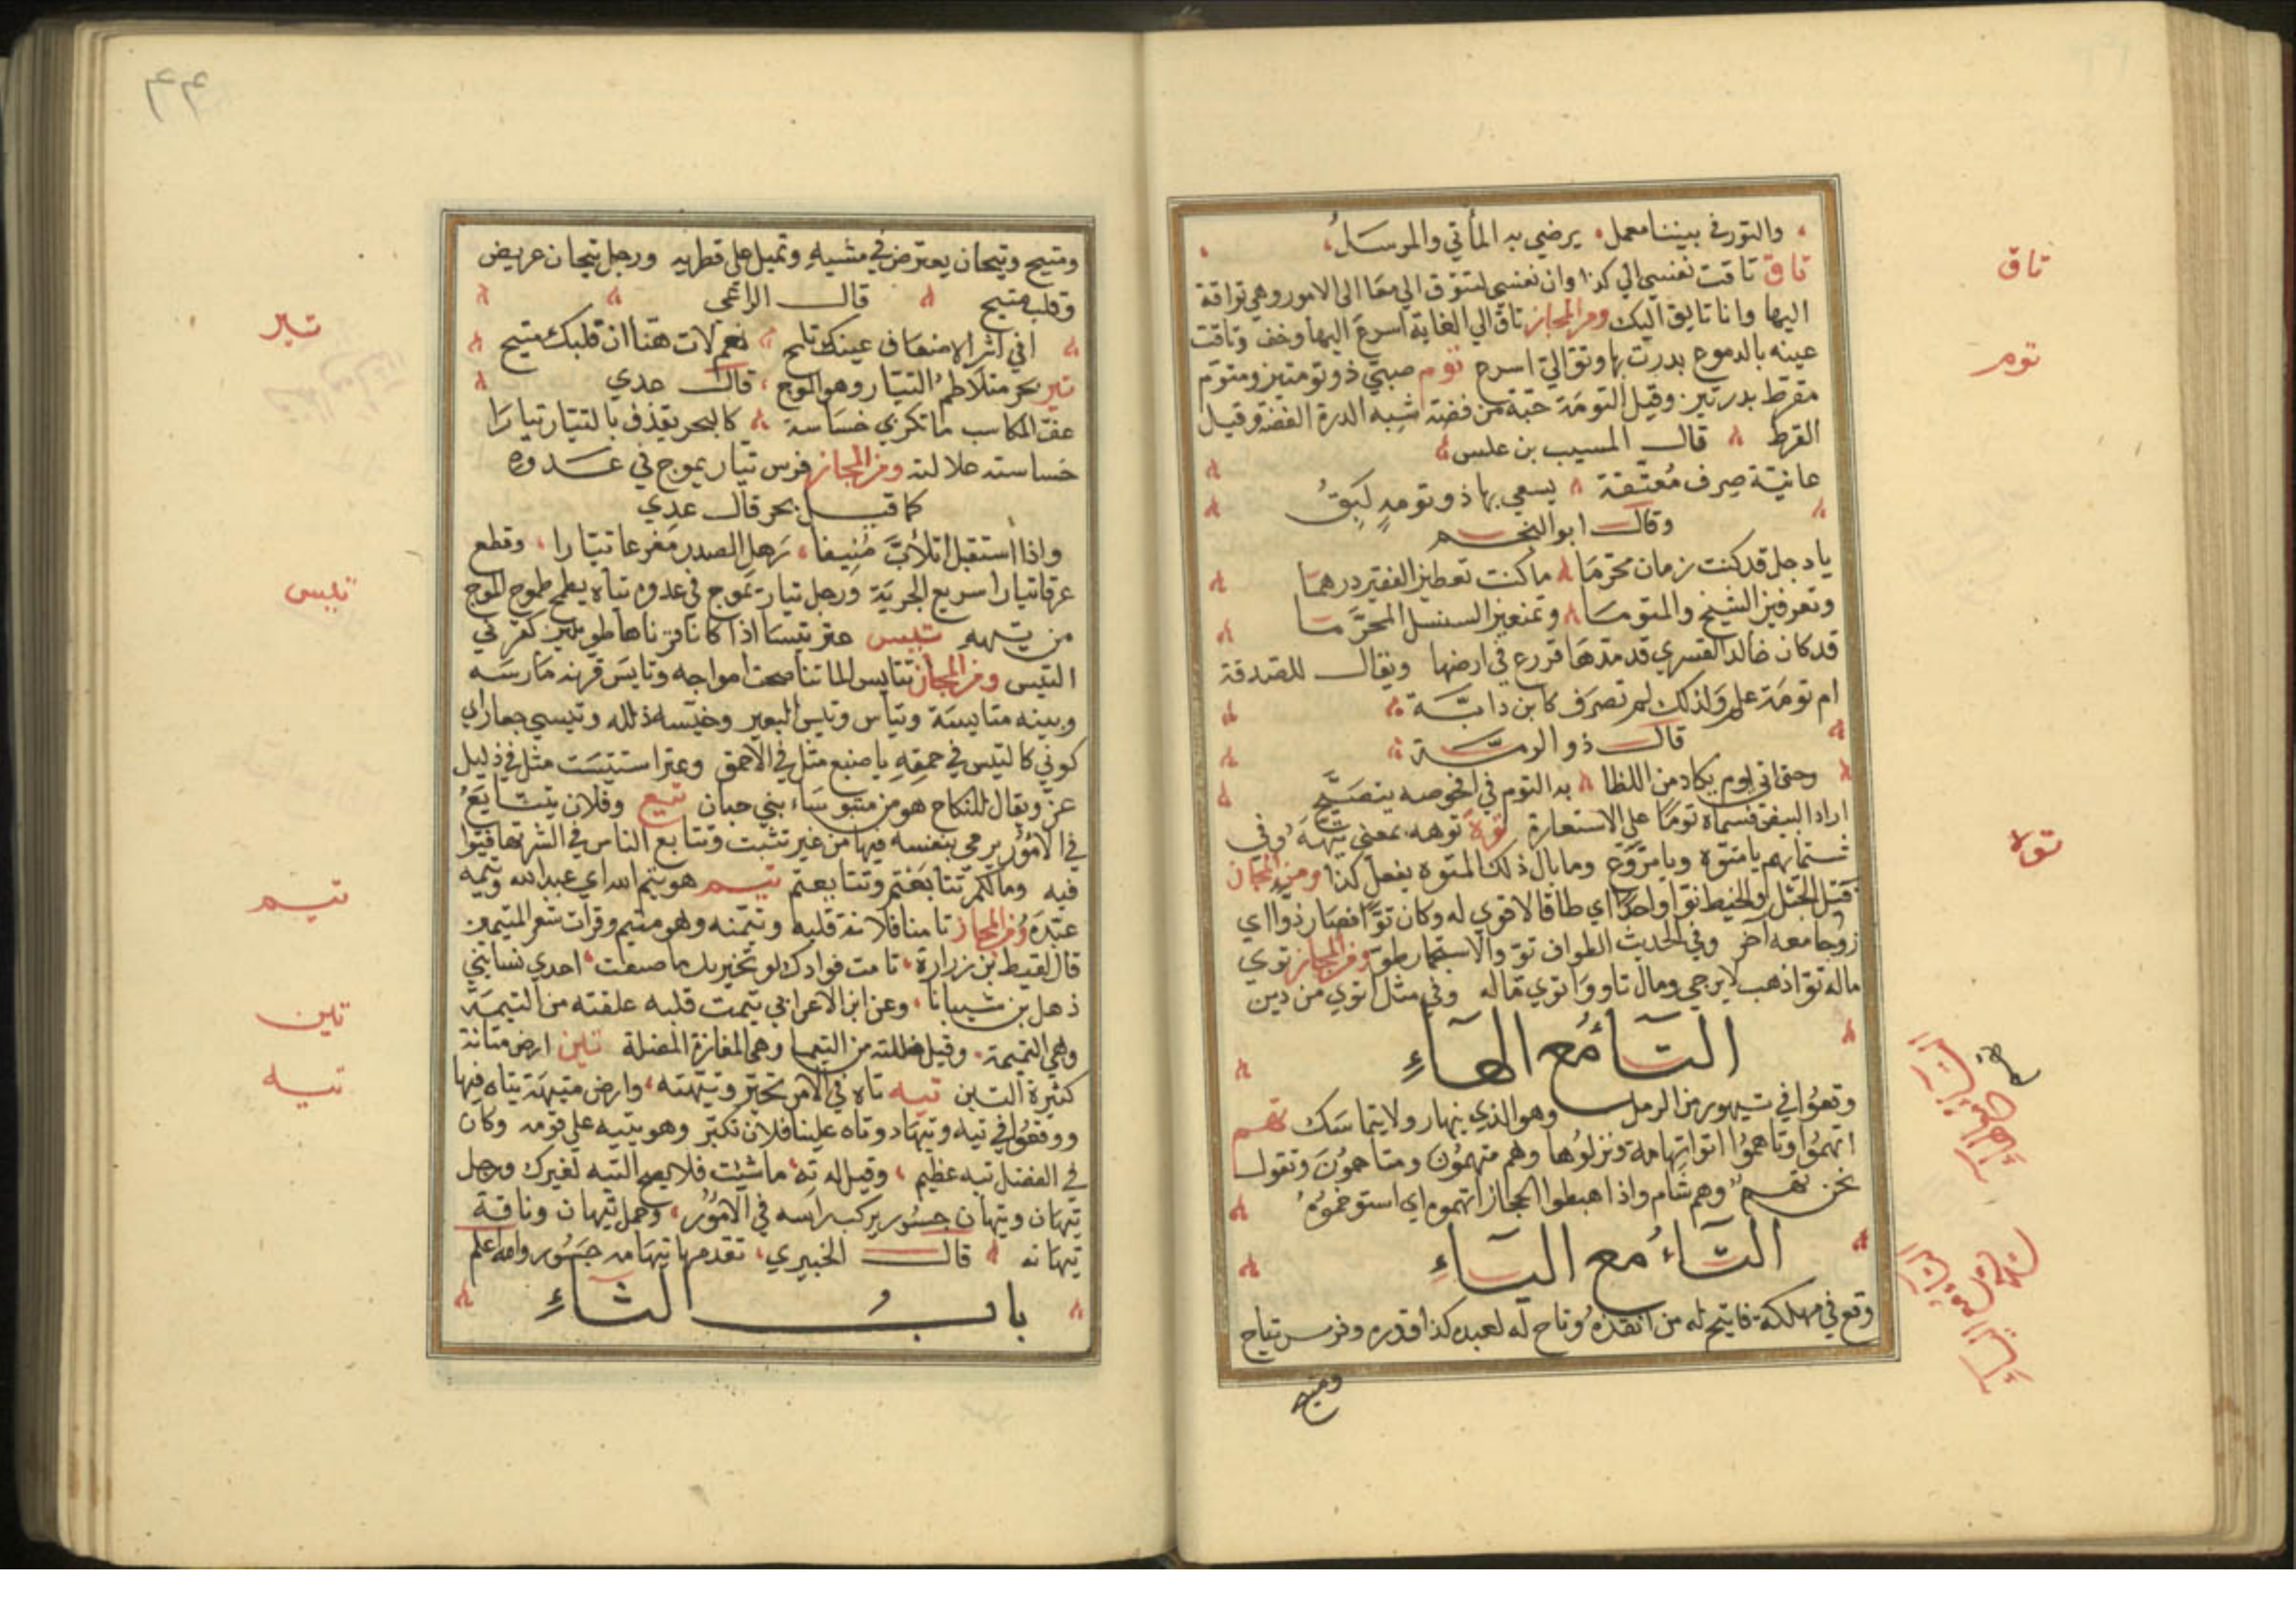 والتور في بيننا معمل يرضى به المأتي والمرسل
تاق تاقت نفسي الي كذا وان نفسي لتتوق الي معالي الامور وهي تواقة
اليها وانا تايق اليك ومن المجاز تاق الي الغاية اسرع اليها وخف وتاقت
عينه بالدموع بدرت بها وتوالي اسرع توم صبي ذو تومتين ومتوم
مقرط بدرتين وقيل التومة حبة من فضة شبه الدرة الفضة وقيل
القرط قال المسيب بن علس
عانية صرف معتقة يسعي بها ذو تومة لبق
وقال ابو النجم
يا دجل قد كنت زمان محرما ما كنت تعطين الفقير درهما
وتغرفين الشيخ والمتوما وتمنعين السنسل المحرما
قد كان خالد القسري قد مدها فزرع في ارضها ويقال للصدقة
ام تومة علم ولذلك لم تصرف كابن داية
قال ذو الرمة
وحتى اتي يوم يكاد من اللظا به التوم في افحوصه يتصيح
اراد البيض فسماه توما علي الاستعارة توه توهه بمعني تيهه وفي
شتمايهم يا متوه ويا مزوع وما بال ذلك المتوه يفعل كذا ومن المجاز
فتل الحبل والخيط توا واحدا اي طاقا لا قوي له وكان توا فصار زوا اي
زوجا معه آخر وفي الحديث الطواف تو والاستجمار تو ومن المجاز توي
ماله توا ذهب لا يرجي ومال تاو واتوي ماله وفي مثل اتوي من دين
التاء مع الهاء
وقعوا في تيهور من الرمل وهو الذي ينهار ولا يتماسك تهم
اتهموا وتاهموا اتوا تهامة ونزلوها وهم متهمون ومتاهمون وتقول
نحن تهم وهم شام واذا هبطوا الحجاز اتهموه اي استوخموه
التاء مع الياء
وقع في مهلكة فاتيح له من انقذه وتاح له لعبده كذا قدره وفرس تياح
ومتيح
تاق
توم
توه
التاء
مع
الهاء
التاء
مع
الياء
٤٤
ومتيح وتيحان يعترض في مشيه وتميل علي قطريه ورجل تيحان عريض
وقلب متيح قال الراعي
افي اثر الاضعان عينك تلمح نعم لات هنا ان قلبك متيح
تير بحر متلاطم التيار وهو الموج قال عدي
عف المكاسب ما تكدي خساسة كالبحر يقذف بالتيار تيارا
خساسته علالته ومن المجاز فرس تيار يموج في عدوه
كما قيل بحر قال عدي
واذا استقبل اتلأب منيفا رهل الصدر مفرعا تيارا وقطع
عرقا تيارا سريع الجرية ورجل تيار تموج في عدوه تياه يطمح طموح الموج
من تيهه تيس عنز تيسا اذا كان قرناها طويلين كقرني
التيس ومن المجاز تتايس الما تناطحت امواجه وتايس قرنه مارسه
وبينه متايسة وتياس وتيس البعير وخيسه ذلله وتيسي جعار اي
كوني كالتيس في حمقه يا ضبع مثل في الاحمق وعنز استتيست مثل في ذليل
عز ويقال للنكاح هو من متيوساء بني حبان تيع وفلان يتتايع
في الامور يرمي بنفسه فيها من غير تثبت وتتابع الناس في الشر تهافتوا
فيه وما لكم تتابعتم وتتايعتم تيم هو تيم الله اي عبد الله وتيمه
عبده ومن المجاز تامتنا فلانة قلبه وتيمته وهو متيم وقرات شعر المتيمين
قال لقيط بن زرارة تامت فوادك لو تحزيك ما صنعت احدي نسا بني
ذهل بن شيبانا وعن ابن الاعرابي تيمت قلبه علقته من التيمة
وهي التميمة وقيل ضللته من التيما وهي المفازة المضلة تين ارض متانة
كثيرة التين تيه تاه في الامر تحير وتيهته وارض متيهة يتاه فيها
ووقعوا في تيه وتيهاء وتاه علينا فلان تكبر وهو يتيه علي قومه وكان
في الفضل تيه عظيم وقيل له ته ما شئت فلا يصح التيه لغيرك ورجل
تيهان وتيهان جسور يركب راسه في الامور وجمل تيهان وناقة
تيهانه قال الخيبري تقدمها تيهامه جسور والله اعلم
باب الثاء
تير
تيس
تيم
تين
تيه